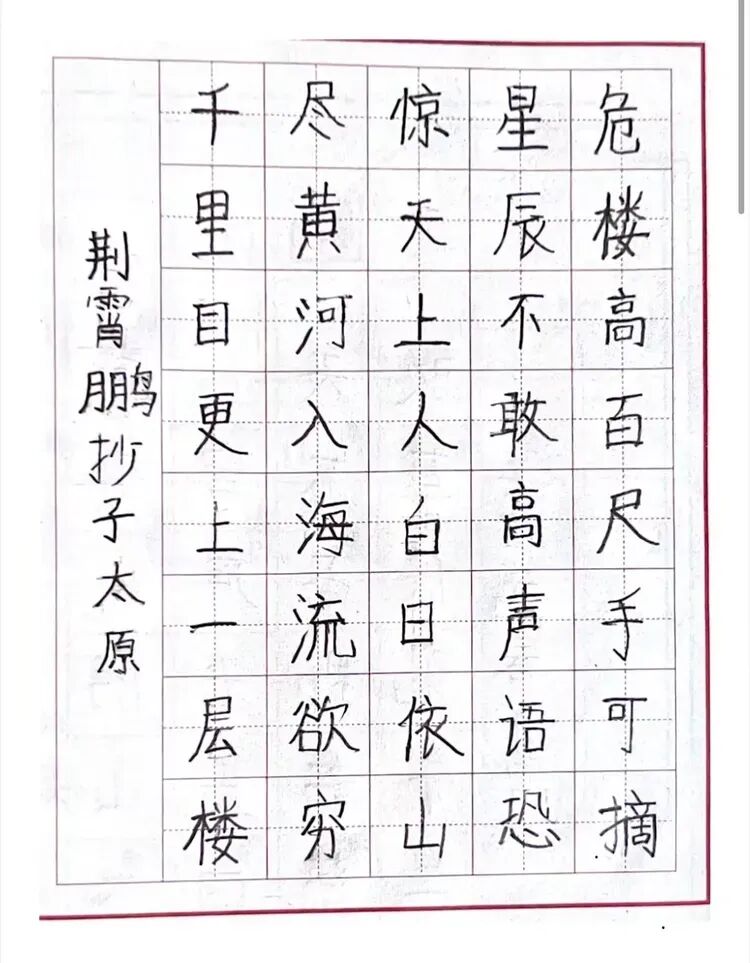 危楼高百尺手可摘
星辰不敢高声语恐
惊天上人自日依山
尽黄河入海流欲穷
千里目更上一层楼
荆霄鹏抄子太原